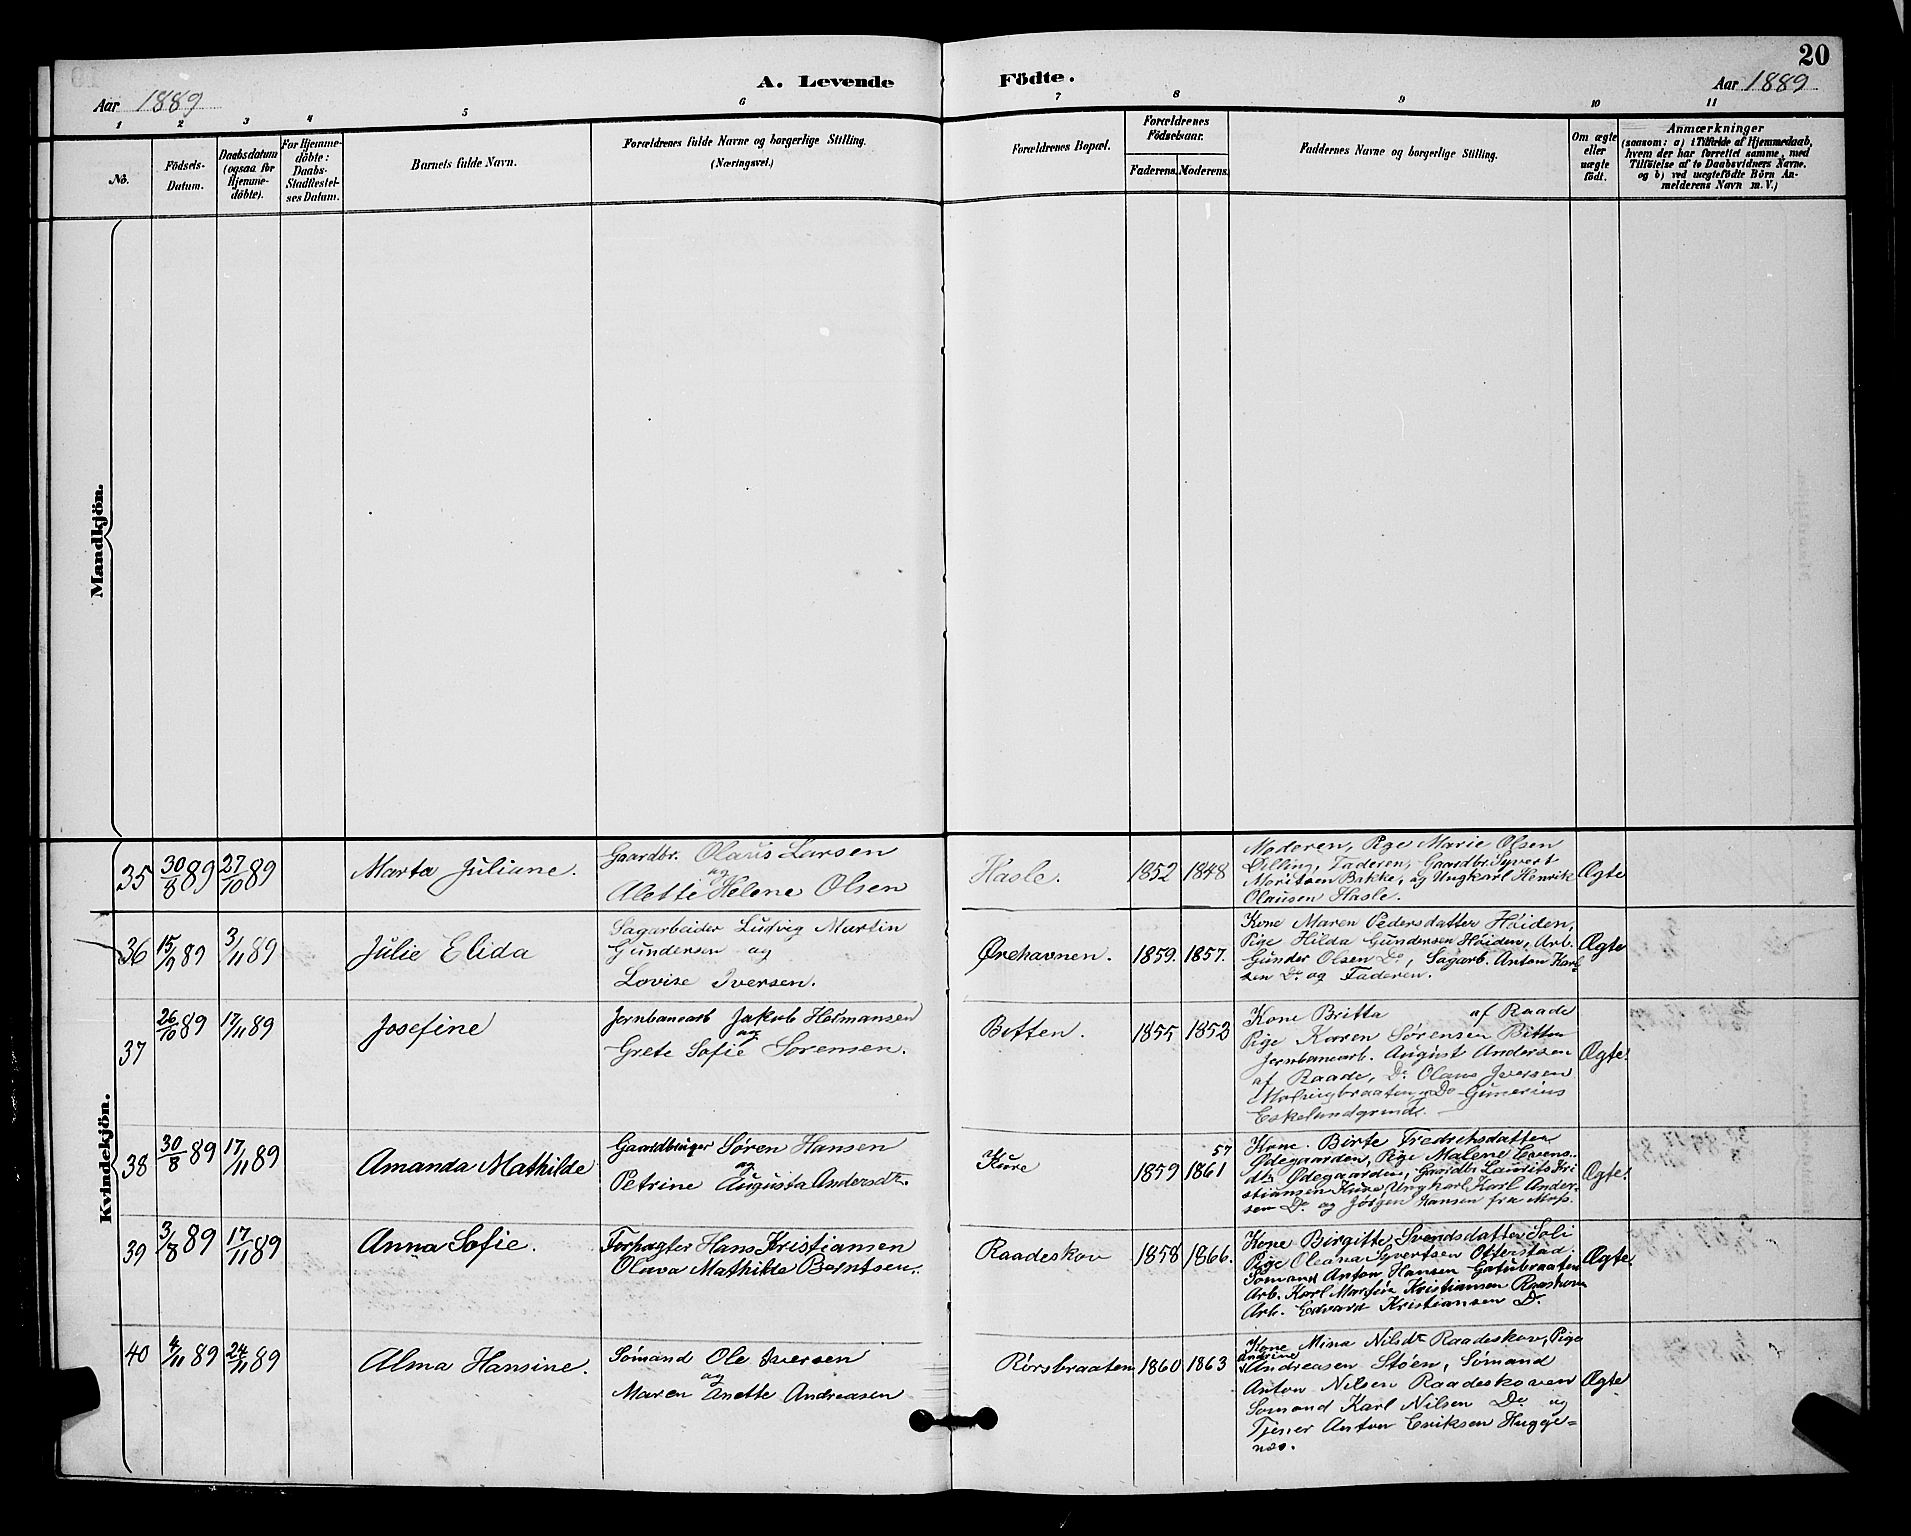 20
A. Levende Födte.
Aar 1889
Aar 1889
1 2 3 4 5 6 7 8 9 10 11
No.
Födsels-Datum.
Daabsdatum (ogsaa for Hjemme-döbte).
For Hjemme-döbte: Daabs-Stadfæstel-ses Datum.
Barnets fulde Navn.
Forældrenes fulde Navne og borgerlige Stilling.
(Næringsvei.)
Forældrenes Bopæl.
Forældrenes Födselsaar.
Faderens. Moderens.
Faddernes Navne og borgerlige Stilling.
Om ægte eller uægte födt.
Anmærkninger
(saasom: a) i Tilfælde af Hjemmedaab,
hvem der har forrettet samme, med
Tilföielse af to Daabsvidners Navne.
og b) ved uægtefödte Börn An-
melderens Navn m. V.)
Mandkjön.
Kvindekjön.
35 30/8 89 27/10 89 Marta Juliane.
Gaardbr. Olaus Larsen
og
Alette Helene Olsen
Hasle. 1852 1848
Moderen, Pige Marie Olsen
Dilling, Faderen, Gaardbr Syvert
Moritsen Bakke, og Ungkarl Henrik
Olausen Hasle.
Ægte
36 15/9 89 3/11 89 Julie Elida
Sagarbeider Ludvig Martin
Gundersen og
Lovise Iversen.
Ørehavnen. 1859. 1857.
Kone Maren Pedersdatter Høiden,
Pige Hilda Gundersen Høiden, Arb.
Gunder Olsen Do, Sagarb. Anton Karl
sen Do og Faderen.
Ægte
37 26/10 89 17/11 89 Josefine
Jernbanearb Jakob Hermansen
og
Grete Sofie Sørensen.
Botten. 1855 1853
Kone Britta af Raade
Pige Karen Sørensen Bitten
Jernbanearb. August Andersen
af Raade, Do Olaus Iversen
Do Gunerius
Eskelundgrund.
Ægte.
38 30/8 89 17/11 89 Amanda Mathilde
Gaardbruger Søren Hansen
og
Petrine Augusta Andersdtr.
Kure 1859 57 1861
Kone. Birte Fredriksdatter
Ødegaarden, Pige Malene Evens..
dtr Ødegaarden, Gaardbr Laurits Kri
stiansen Kure, Ungkarl Karl Ander-
sen Do og Jørgen Hansen fra Moss.
Ægte.
39 3/8 89 17/11 89 Anna Sofie.
Forpagter Hans Kristiansen
Olava Mathilde Berntsen.
Raadeskov 1858 1866.
Kone Birgitte Svendsdatter Soli
Pige Oleana Syvertsen Otterstad.
Sømand Anton Hansen Gatubraaten
Arb. Karl Martin Kristiansen Raaskoven
Arb. Edvard Kristiansen Do
Ægte.
40 4/11 89 24/11 89 Alma Hansine.
Sømand Ole Iversen
og
Maren Anette Andreasen
Rørsbraaten 1860 1863
Kone Mina Nilsdtr Raadeskov, Pige
Andrine
Andreasen Støen, Sømand
Anton Nilsen Raadeskoven
Sømand Karl Nilsen Do og
Tjener Anton Eriksen Hugge=
næs.
Ægte